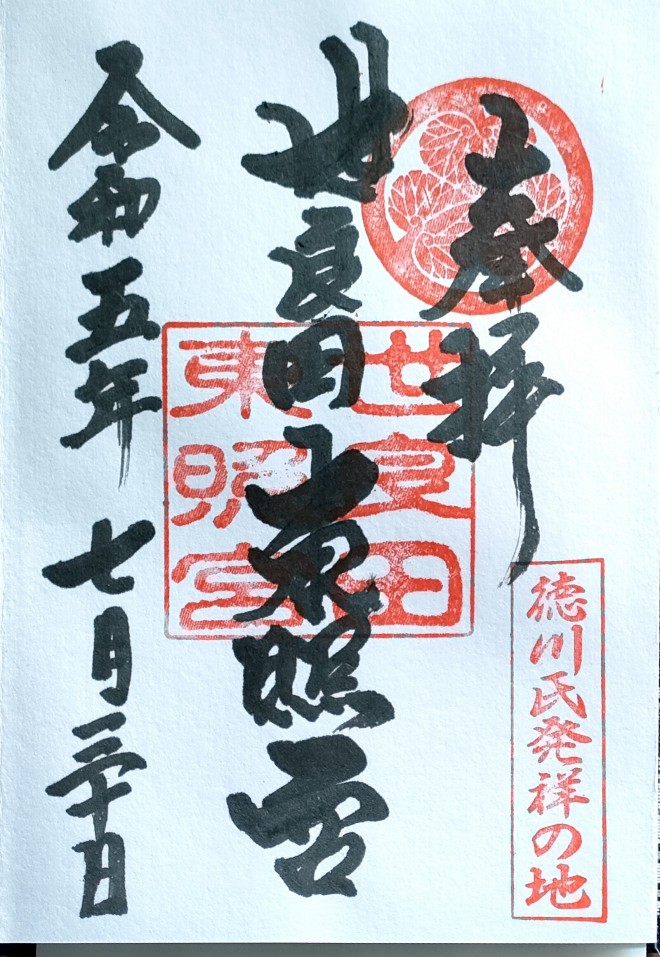 奉拝
徳川氏発祥の地
世良田東照宮
世良田
東照宮
令和五年七月三十日